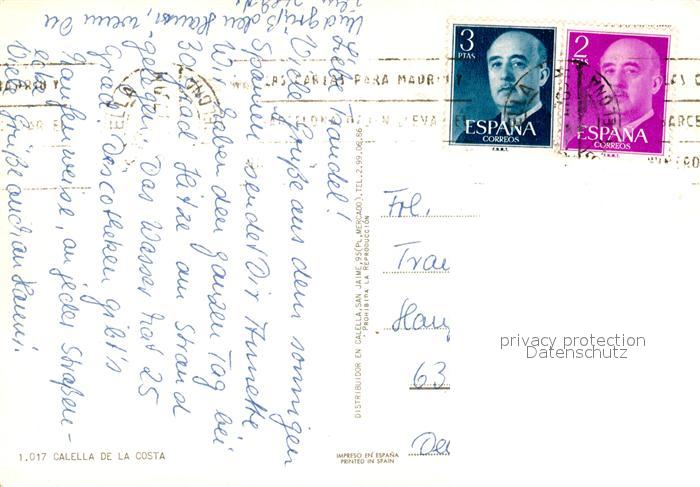 Liebe Traudel!
Viele Grüße aus dem sonnigen
Spanien sendet Dir Annette
Wir haben den ganzen Tag bei
30 Grad Hitze am Strand
gelegen. Das Wasser hat 25
Grad. Discotheken gibt's
haufenweise, an jeder Straßen-
ecke.
Viele Grüße auch an
Und grüß den
wenn Du
1.017 CALELLA DE LA COSTA
DISTRIBUIDOR EN CALELLA, SAN JAIME, 95 (PL, MERCADO), TEL, 2.99.06.86
PROHIBIDA LA REPRODUCCIÓN
IMPRESO EN ESPAÑA
PRINTED IN SPAIN
3
PTAS
ESPAÑA
CORREOS
F.N.M.T.
2
PTAS
ESPAÑA
CORREOS
F.N.M.T.
PARA MADRID Y
Frl.
Trau
Hau
63
privacy protection
Datenschutz